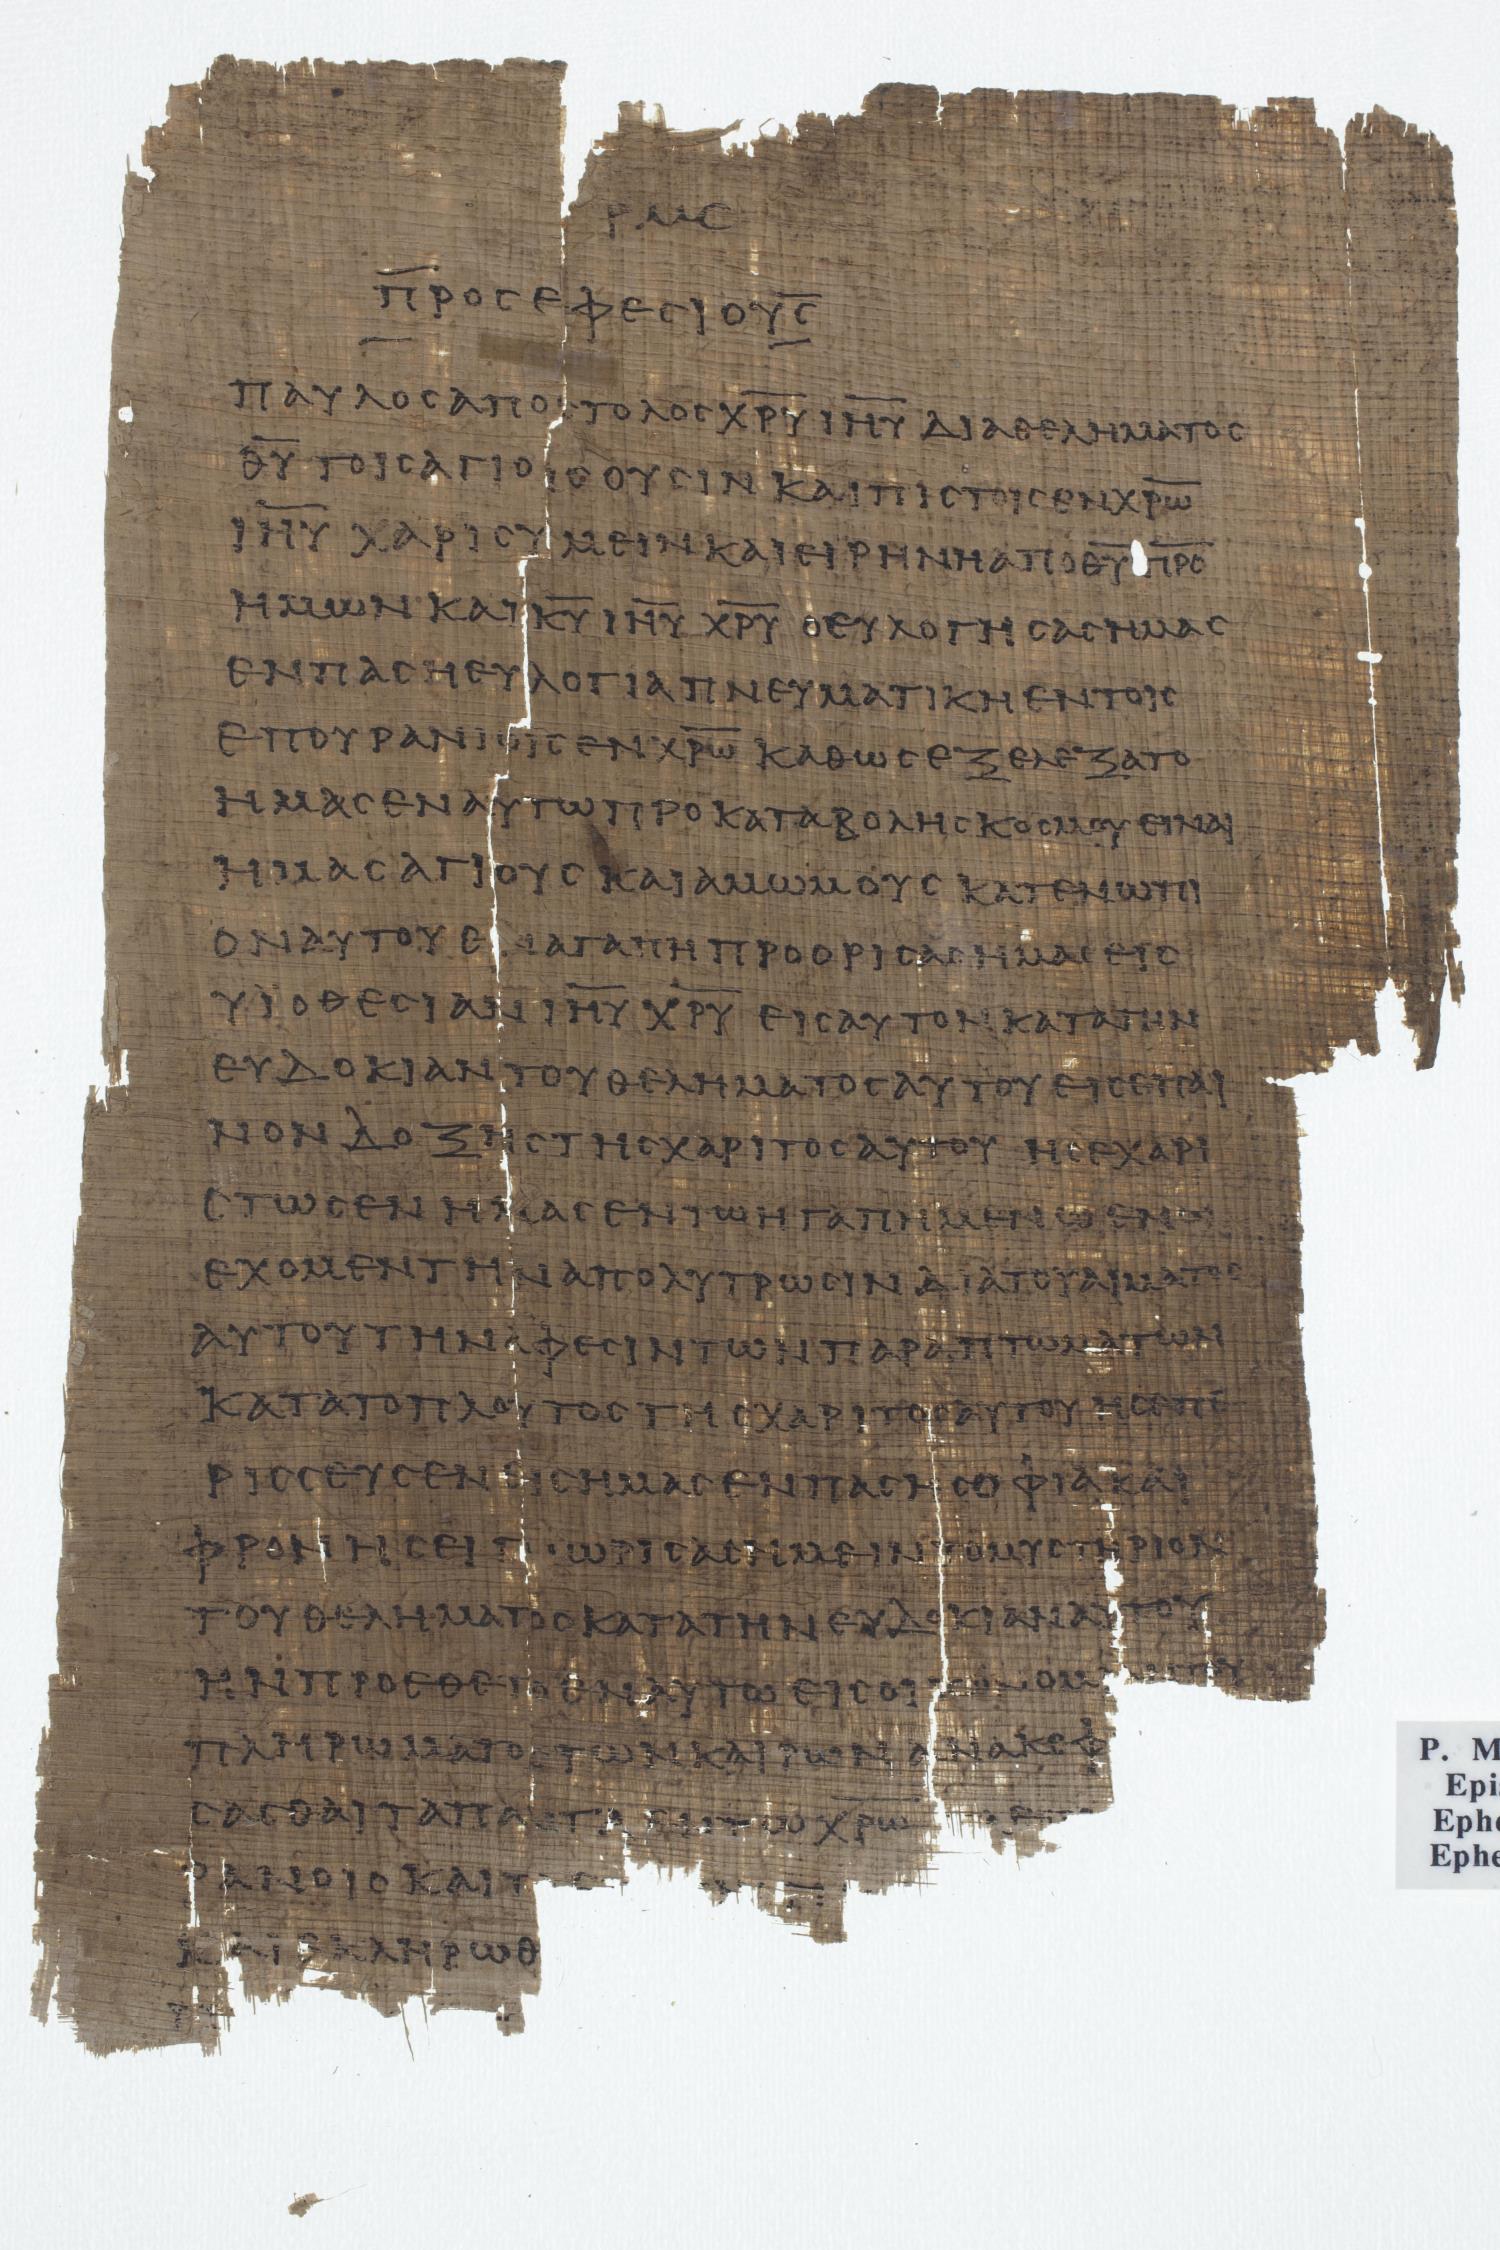 ΡΜϹ
ΠΡΟϹΕΦΕϹΙΟΥϹ
ΠΑΥΛΟϹΑΠΟϹΤΟΛΟϹΧΡΥ ΙΗΥ ΔΙΑΘΕΛΗΜΑΤΟϹ
ΘΥ ΤΟΙϹΑΓΙΟΙϹΟΥϹΙΝ ΚΑΙΠΙϹΤΟΙϹΕΝΧΡΩ
ΙΗΥ ΧΑΡΙϹΥΜΕΙΝΚΑΙΕΙΡΗΝΗΑΠΟΘΥ ΠΡΟ
ΗΜΩΝ ΚΑΙ ΚΥ ΙΗΥ ΧΡΥ ΟΕΥΛΟΓΗϹΑϹΗΜΑϹ
ΕΝΠΑϹΗΕΥΛΟΓΙΑΠΝΕΥΜΑΤΙΚΗΕΝΤΟΙϹ
ΕΠΟΥΡΑΝΙΟΙϹΕΝΧΡΩ ΚΑΘΩϹΕΞΕΛΕΞΑΤΟ
ΗΜΑϹΕΝΑΥΤΩΠΡΟΚΑΤΑΒΟΛΗϹΚΟϹΜΟΥΕΙΝΑΙ
ΗΜΑϹΑΓΙΟΥϹΚΑΙΑΜΩΜΟΥϹ ΚΑΤΕΝΩΠΙ
ΟΝΑΥΤΟΥΕΝΑΓΑΠΗΠΡΟΟΡΙϹΑϹΗΜΑϹΕΙϹ
ΥΪΟΘΕϹΙΑΝ ΙΗΥ ΧΡΥ ΕΙϹΑΥΤΟΝΚΑΤΑΤΗΝ
ΕΥΔΟΚΙΑΝΤΟΥΘΕΛΗΜΑΤΟϹΑΥΤΟΥΕΙϹΕΠΑΙ
ΝΟΝΔΟΞΗϹΤΗϹΧΑΡΙΤΟϹΑΥΤΟΥ ΗϹΕΧΑΡΙ
ϹΤΩϹΕΝΗΜΑϹΕΝΤΩΗΓΑΠΗΜΕΝΩΕΝΩ
ΕΧΟΜΕΝΤΗΝΑΠΟΛΥΤΡΩϹΙΝΔΙΑΤΟΥΑΙΜΑΤΟϹ
ΑΥΤΟΥΤΗΝΑΦΕϹΙΝΤΩΝΠΑΡΑΠΤΩΜΑΤΩΝ
ΚΑΤΑΤΟΠΛΟΥΤΟϹΤΗϹΧΑΡΙΤΟϹΑΥΤΟΥΗϹΕΠΕ
ΡΙϹϹΕΥϹΕΝΕΙϹΗΜΑϹΕΝΠΑϹΗϹΟΦΙΑΚΑΙ
ΦΡΟΝΗϹΕΙΓΝΩΡΙϹΑϹΗΜΕΙΝΤΟΜΥϹΤΗΡΙΟΝ
ΤΟΥΘΕΛΗΜΑΤΟϹΚΑΤΑΤΗΝΕΥΔΟΚΙΑΝΑΥΤΟΥ
ΗΝΠΡΟΕΘΕΤΟΕΝΑΥΤΩΕΙϹΟΙΚΟΝΟΜΙΑΝΤΟΥ
ΠΛΗΡΩΜΑΤΟϹΤΩΝΚΑΙΡΩΝΑΝΑΚΕΦ
ϹΑϹΘΑΙΤΑΠΑΝΤΑΕΝΤΩΧΡΩ
ΡΑΝΟΙϹΚΑΙΤ
ΚΑΙΕΚΛΗΡΩΘ
P. M
Epis
Ephe
Ephe